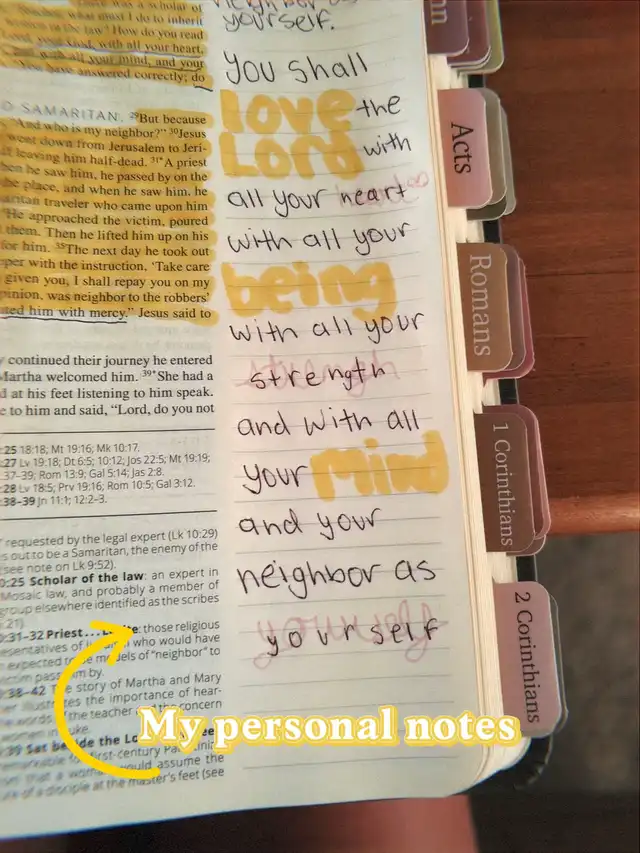 There was a scholar of
what must I do to inherit
in the law? How do you read
your God, with all your heart,
with all your mind, and your
You have answered correctly; do
SAMARITAN. 29But because
"And who is my neighbor?" 30Jesus
went down from Jerusalem to Jeri-
leaving him half-dead. 31*A priest
he saw him, he passed by on the
place, and when he saw him, he
traveler who came upon him
He approached the victim, poured
them. Then he lifted him up on his
for him. 35The next day he took out
with the instruction. 'Take care
given you, I shall repay you on my
opinion, was neighbor to the robbers'
him with mercy." Jesus said to
continued their journey he entered
Martha welcomed him. 39*She had a
at his feet listening to him speak.
to him and said, "Lord, do you not
:25 18:18; Mt 19:16; Mk 10:17.
:27 Lv 19:18; Dt 6:5; 10:12; Jos 22:5; Mt 19:19;
37–39; Rom 13:9; Gal 5:14; Jas 2:8.
:28 Lv 18:5; Prv 19:16; Rom 10:5; Gal 3:12.
:38–39 Jn 11:1; 12:2-3.
requested by the legal expert (Lk 10:29)
out to be a Samaritan, the enemy of the
see note on Lk 9:52).
0:25 Scholar of the law: an expert in
Mosaic law, and probably a member of
group elsewhere identified as the scribes
:21).
0:31–32 Priest . . . : those religious
of who would have
expected to be models of "neighbor" to
by.
:38–42 The story of Martha and Mary
the importance of hear-
words of the teacher the concern
women in
:39 Sat beside the
for first-century
that a woman would assume the
of a disciple at the master's feet (see
neighbor as
yourself.
you shall
love the
Lord with
all your heart
with all your
being
with all your
strength
and with all
your mind
and your
neighbor as
yourself
Acts
Romans
1 Corinthians
2 Corinthians
My personal notes